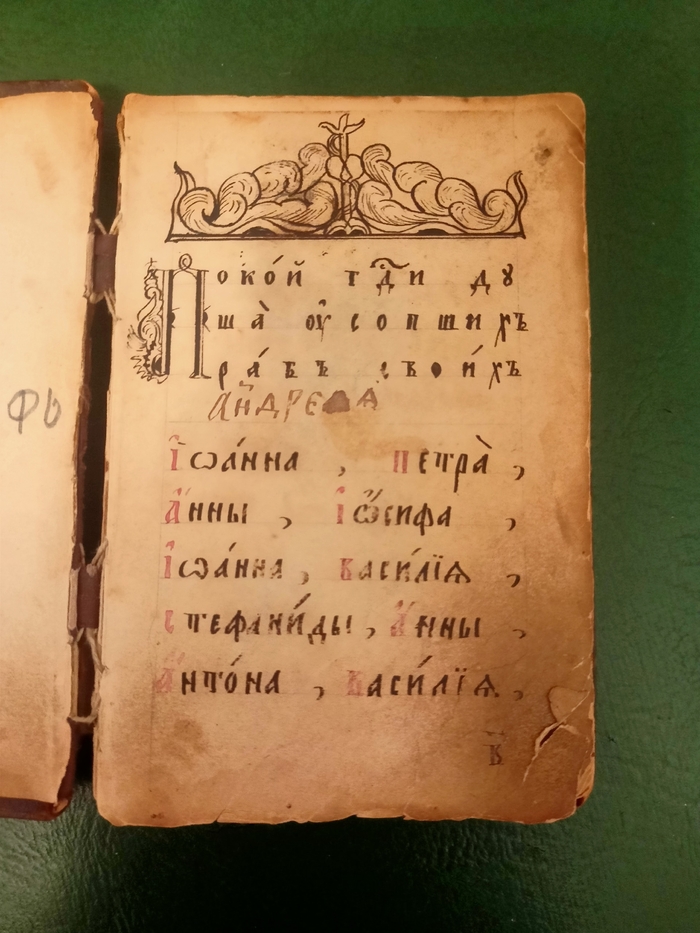 ФЬ
Поко́й гд҃и ду
ша̀ оу҆сопшихъ
ра́бъ свои́хъ
Андреѧ
І҆ѡа́нна, Петра̀,
А҆́нны, І҆ѡ́сифа,
І҆ѡа́нна, Васи́лїѧ,
Стефани́ды, А҆́нны,
А҆нто́на, Васи́лїѧ.,
в҃